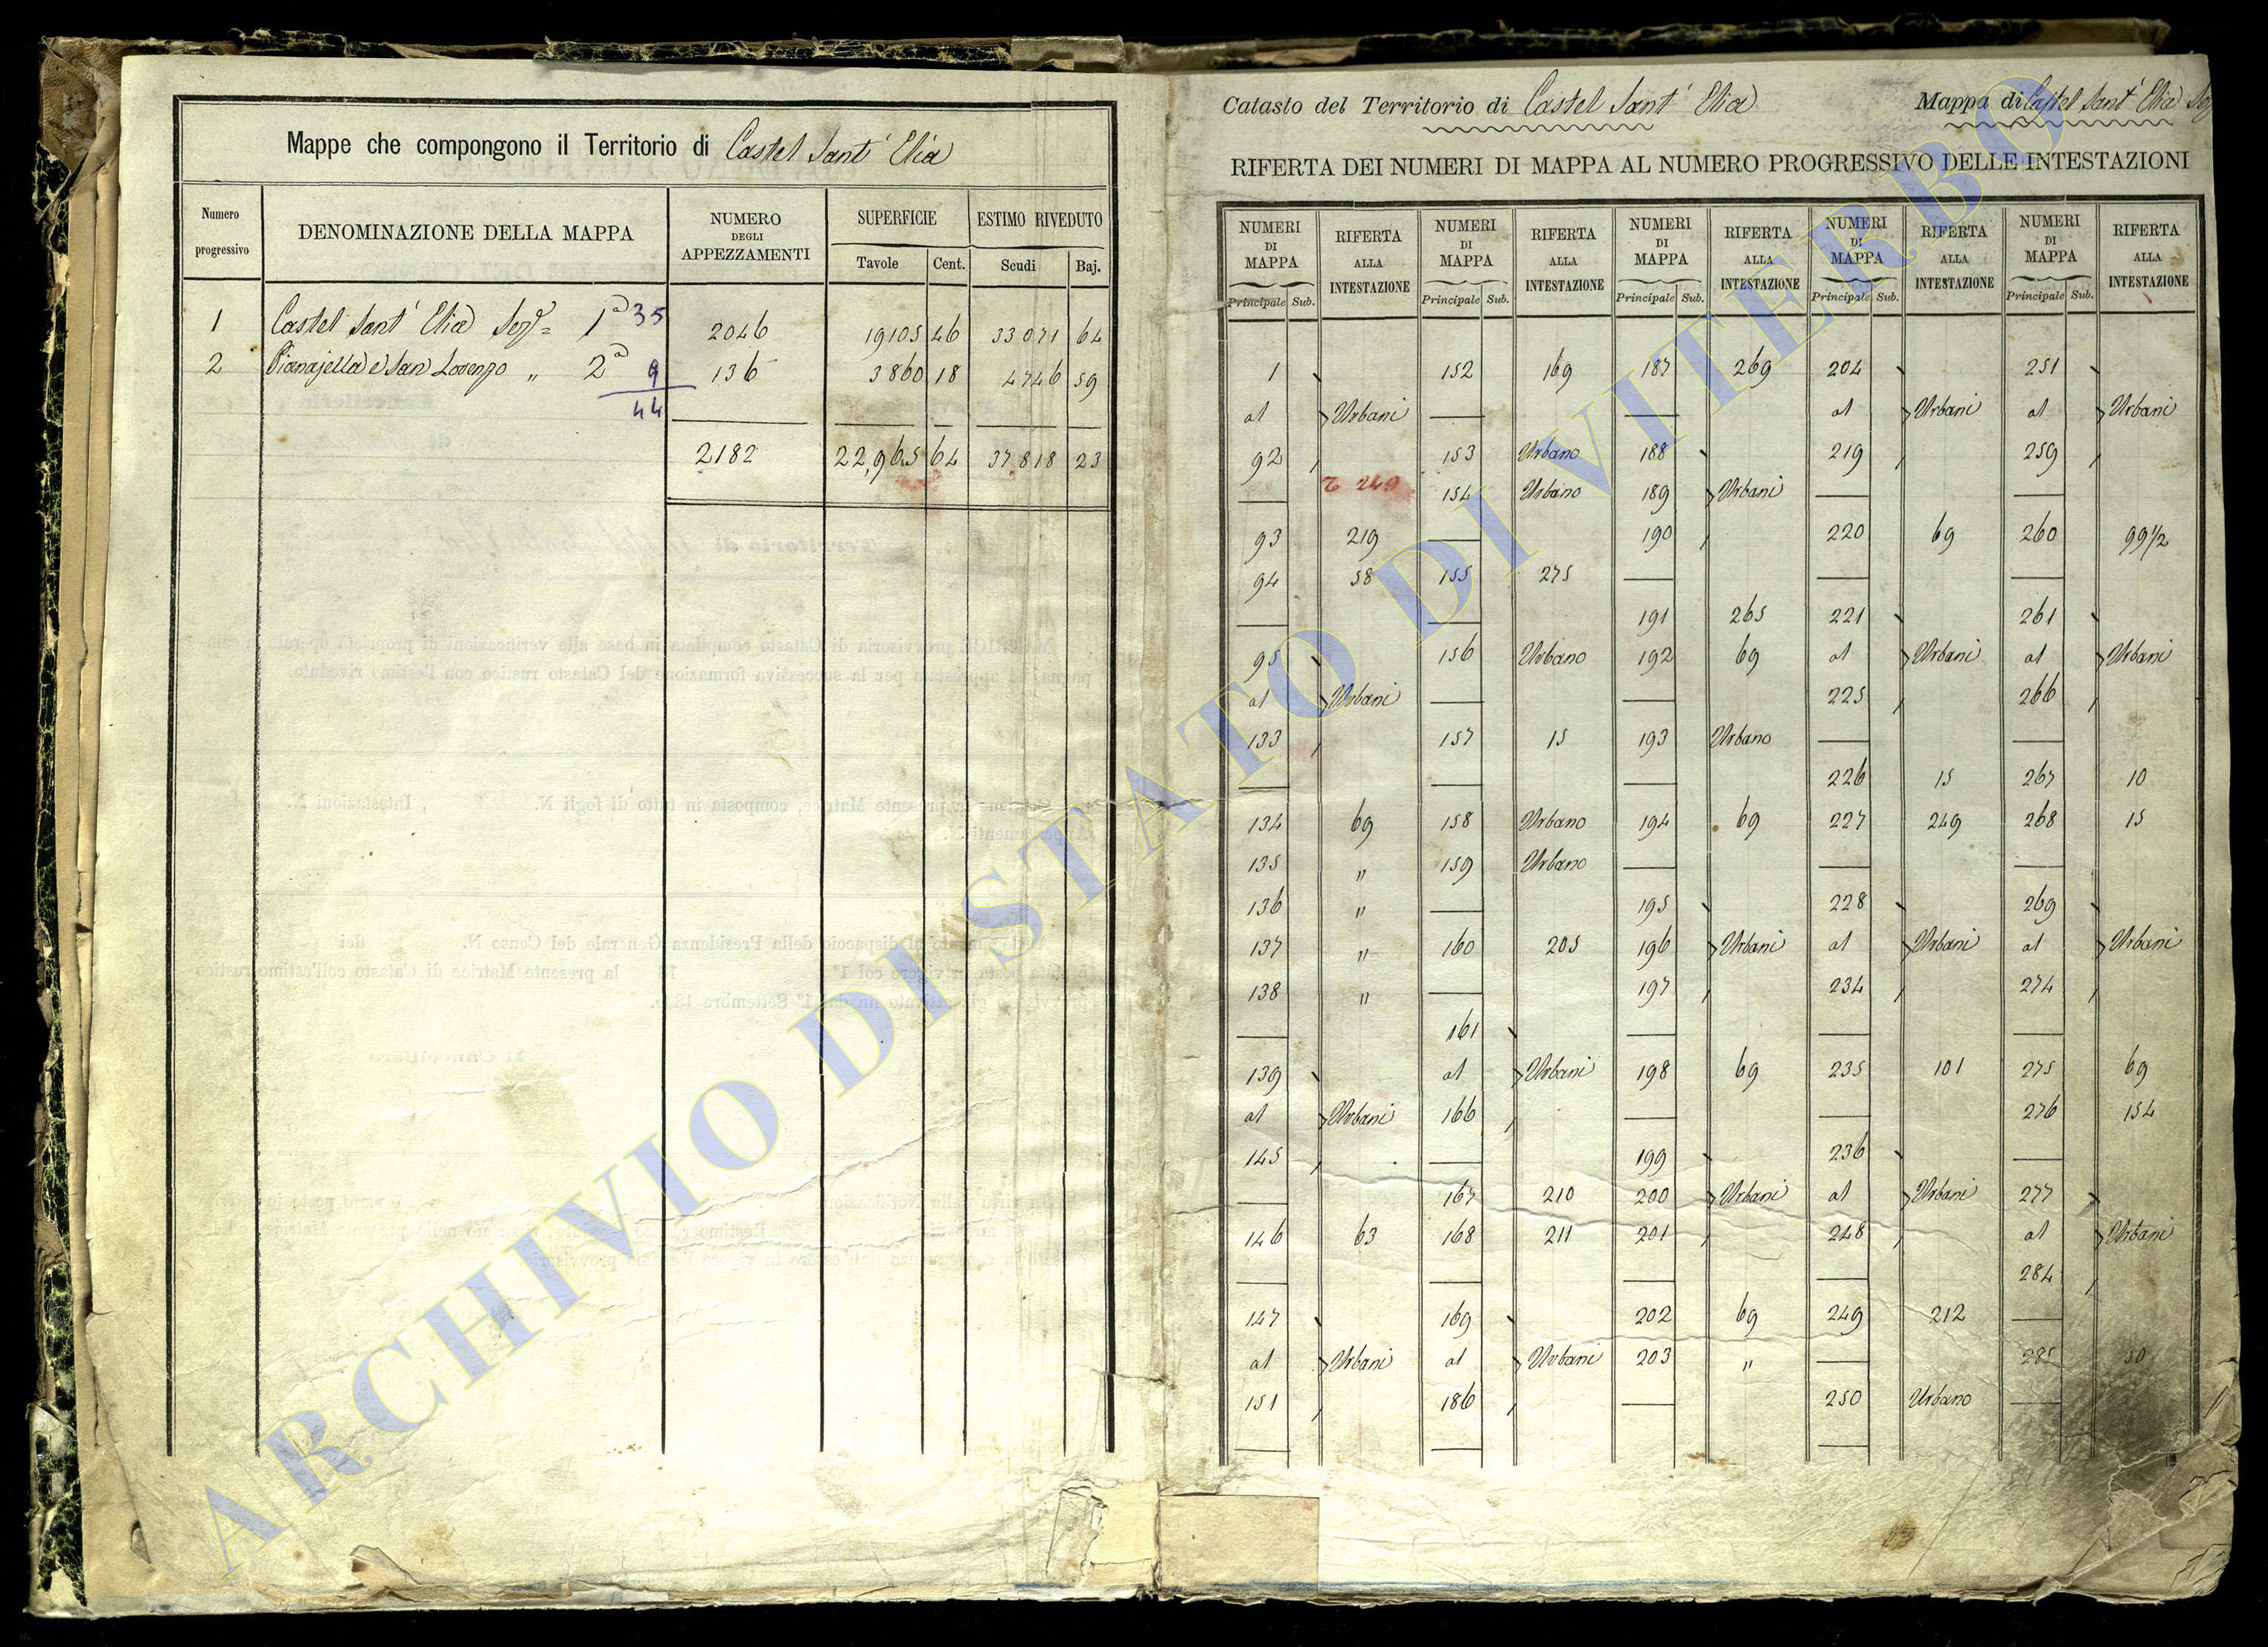 Mappe che compongono il Territorio di Castel Sant' Elia
Numero progressivo DENOMINAZIONE DELLA MAPPA NUMERO DEGLI APPEZZAMENTI SUPERFICIE ESTIMO RIVEDUTO
Tavole Cent. Scudi Baj.
1 Castel Sant' Elia Sez.e 1a 35 2046 19105 46 33071 64
2 Pianajella e San Lorenzo „ 2a 9 136 3860 18 4746 59
44
2182 22,965 64 37818 23
Catasto del Territorio di Castel Sant' Elia Mappa di Castel Sant' Elia Sez
RIFERTA DEI NUMERI DI MAPPA AL NUMERO PROGRESSIVO DELLE INTESTAZIONI
NUMERI DI MAPPA RIFERTA ALLA INTESTAZIONE NUMERI DI MAPPA RIFERTA ALLA INTESTAZIONE NUMERI DI MAPPA RIFERTA ALLA INTESTAZIONE NUMERI DI MAPPA RIFERTA ALLA INTESTAZIONE NUMERI DI MAPPA RIFERTA ALLA INTESTAZIONE
Principale Sub. Principale Sub. Principale Sub. Principale Sub. Principale Sub.
1 152 169 187 269 204 251
al Urbani al Urbani al Urbani
92 153 Urbano 188 219 259
249 154 Urbano 189 Urbani
93 219 190 220 69 260 99 1/2
94 58 155 275
191 265 221 261
95 156 Urbano 192 69 al Urbani al Urbani
al Urbani 225 266
133 157 15 193 Urbano
226 15 267 10
134 69 158 Urbano 194 69 227 249 268 15
135 „ 159 Urbano
136 „ 195 228 269
137 „ 160 205 196 Urbani al Urbani al Urbani
138 „ 197 234 274
161
139 al Urbani 198 69 235 101 275 69
al Urbani 166 276 154
145 199 236
167 210 200 Urbani al Urbani 277
146 63 168 211 201 248 al Urbani
284
147 169 202 69 249 212
al Urbani al Urbani 203 „ 285 50
151 186 250 Urbano
ARCHIVIO DI STATO DI VITERBO